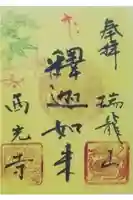 奉拝
瑞龍山
釋迦如来
馬光寺